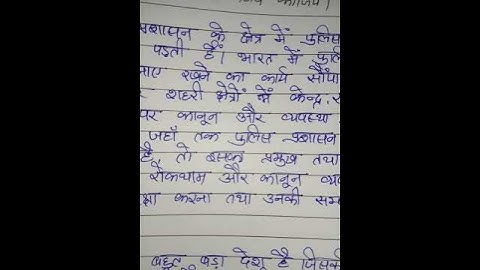 प्रशासन के क्षेत्र में पुलिस
पडती हैं। भारत में
रखने का कार्य सौंपा
शहरी क्षेत्रों में केन्द्र,
पर कानून और व्यवस्था
जहाँ तक पुलिस प्रशासन
है, तो इसका प्रमुख तथा
रोकथाम और कानून
करना तथा उनकी
बहुत बड़ा देश है जिसकी